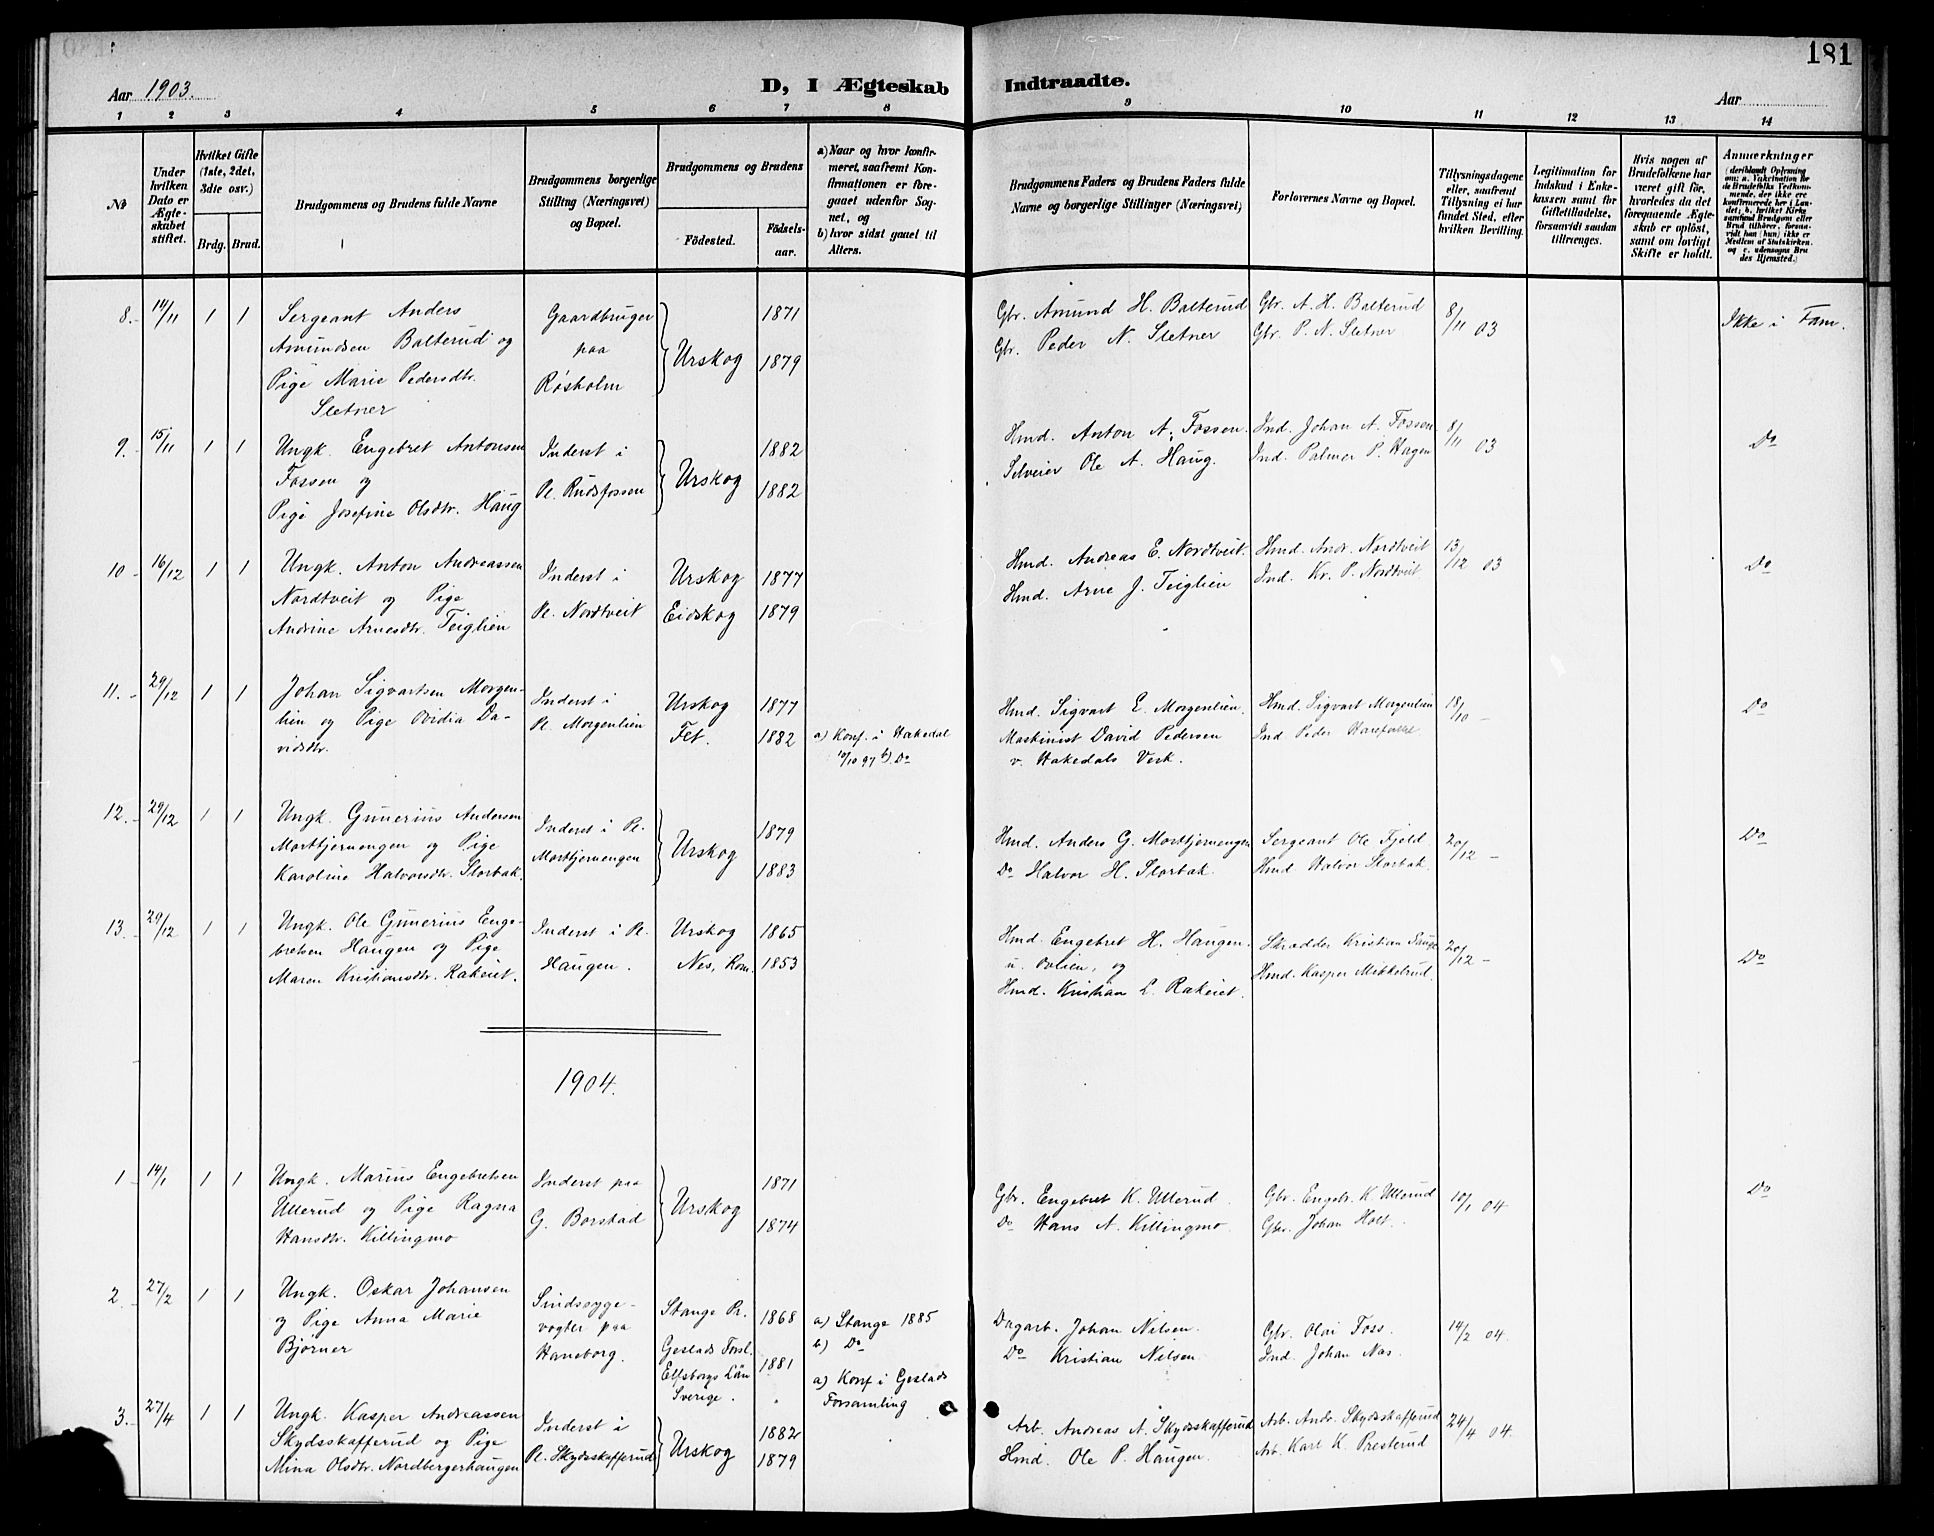 181
Aar 1903.
D, I Ægteskab Indtraadte.
Aar
1 2 3 4 5 6 7 8 9 10 11 12 13 14
No
Under hvilken Dato er Ægteskabet stiftet.
Hvilket Gifte (1ste, 2det, 3die osv.)
Brdg. Brud.
Brudgommens og Brudens fulde Navne
Brudgommens borgerlige Stilling (Næringsvei) og Bopæl.
Brudgommens og Brudens
Fødested.
Fødselsaar.
a) Naar og hvor konfirmeret, saafremt Konfirmationen er foregaaet udenfor Sognet, og
b) hvor sidst gaaet til Alters.
Brudgommens Faders og Brudens Faders fulde Navne og borgerlige Stillinger (Næringsvei)
Forlovernes Navne og Bopæl.
Tillysningsdagene eller, saafremt Tillysning ei har fundet Sted, efter hvilken Bevilling.
Legitimation for Indskud i Enkekassen samt for Giftetilladelse, forsaavidt saadan tiltrænges.
Hvis nogen af Brudefolkene har været gift før, hvorledes da det foregaaende Ægteskab er opløst, samt om lovligt Skifte er holdt.
Anmærkninger
8. 14/11 1 1
Sergeant Anders
Amundsen Balterud og
Pige Marie Pedersdtr.
Sletner
Gaardbruger
paa
Røsholm
Urskog
1871
1879
Gbr. Amund H. Balterud
Gbr. Peder N. Sletner
Gbr. A. H. Balterud
Gbr. P. N. Sletner
8/11 03
Ikke i Fam.
9. 15/11 1 1
Ungk. Engebret Antonsen
Fossen og
Pige Josefine Olsdtr. Haug
Inderst i
Pl. Rudsfossen
Urskog
1882
1882
Hmd. Anton A. Fossen.
Selveier Ole A. Haug.
Ind. Johan A. Fossen
Ind. Palmer P. Hagen
8/11 03
Do
10 16/12 1 1
Ungk. Anton Andreassen
Nordtveit og Pige
Andrine Arnesdtr. Teiglien
Inderst i
Pl. Nordtveit
Urskog 1877
Eidskog 1879
Hmd. Andreas E. Nordtveit.
Hmd. Arne J. Teiglien
Hmd. Andr. Nordtveit
Ind. Kr. P. Nordtveit
13/12 03
Do
11. 29/12 1 1
Johan Sigvartsen Morgen-
lien og Pige Ovidia Da-
vidsdtr.
Inderst i
Pl. Morgenlien
Urskog 1877
Fet. 1882
a) Konf. i Hakedal
10/10 97 b) Do
Hmd. Sigvart E. Morgenlien.
Maskinist David Pedersen
v. Hakedals Verk.
Hmd. Sigvart Morgenlien
Ind. Peder
18/10 -
Do
12. 29/12 1 1
Ungk. Gunerius Andersen
Morttjernengen og Pige
Karoline Halvorsdtr. Storbak.
Inderst i Pl.
Morttjernengen
Urskog
1879
1883
Hmd. Anders G. Morttjernengen
Do Halvor H. Storbak.
Sergeant Ole Fjeld.
Hmd Halvor Storbak.
20/12 -
Do
13. 29/12 1 1
Ungk. Ole Gunerius Enge-
bretsen Haugen og Pige
Maren Kristiansdtr. Rakeiet.
Inderst i Pl.
Haugen.
Urskog 1865
Nes, Rom. 1853
Hmd. Engebret H. Haugen.
u. Ovlien, og
Hmd. Kristian L. Rakeiet.
Skrædder Kristian
Hmd. Kasper Mikkelrud.
20/12 -
Do
1904.
1 14/1 1 1
Ungk. Marius Engebretsen
Ullerud og Pige Ragna
Hansdtr. Killingmo
Inderst paa
G. Borstad
Urskog
1871
1874
Gbr. Engebret K. Ullerud.
Do Hans A. Killingmo.
Gbr. Engebr. K. Ullerud
Gbr. Johan Holt.
10/1 04
Do
2. 27/2 1 1
Ungk. Oskar Johansen
og Pige Anna Marie
Bjørner
Sindssyge-
vogter paa
Haneborg.
Stange Pr. 1868
Geslads Forsl.
Elfsborgs Län
Sverige. 1881
a) Stange 1885
b) Do
a) Konf i Geslads
Forsamling
Dagarb. Johan Nilsen.
Do Kristian Nilsen
Gbr. Olai Foss.
Ind. Johan Nas.
14/2 04.
3. 27/4 1 1
Ungk. Kasper Andreassen
Skydsskafferud og Pige
Mina Olsdtr. Nordbergerhaugen
Inderst i
Pl. Skydsskafferud
Urskog
1882
1879
Arb. Andreas A. Skydsskafferud
Hmd. Ole P. Haugen.
Arb. Andr. Skydsskafferud
Arb. Karl K. Presterud
24/4 04.